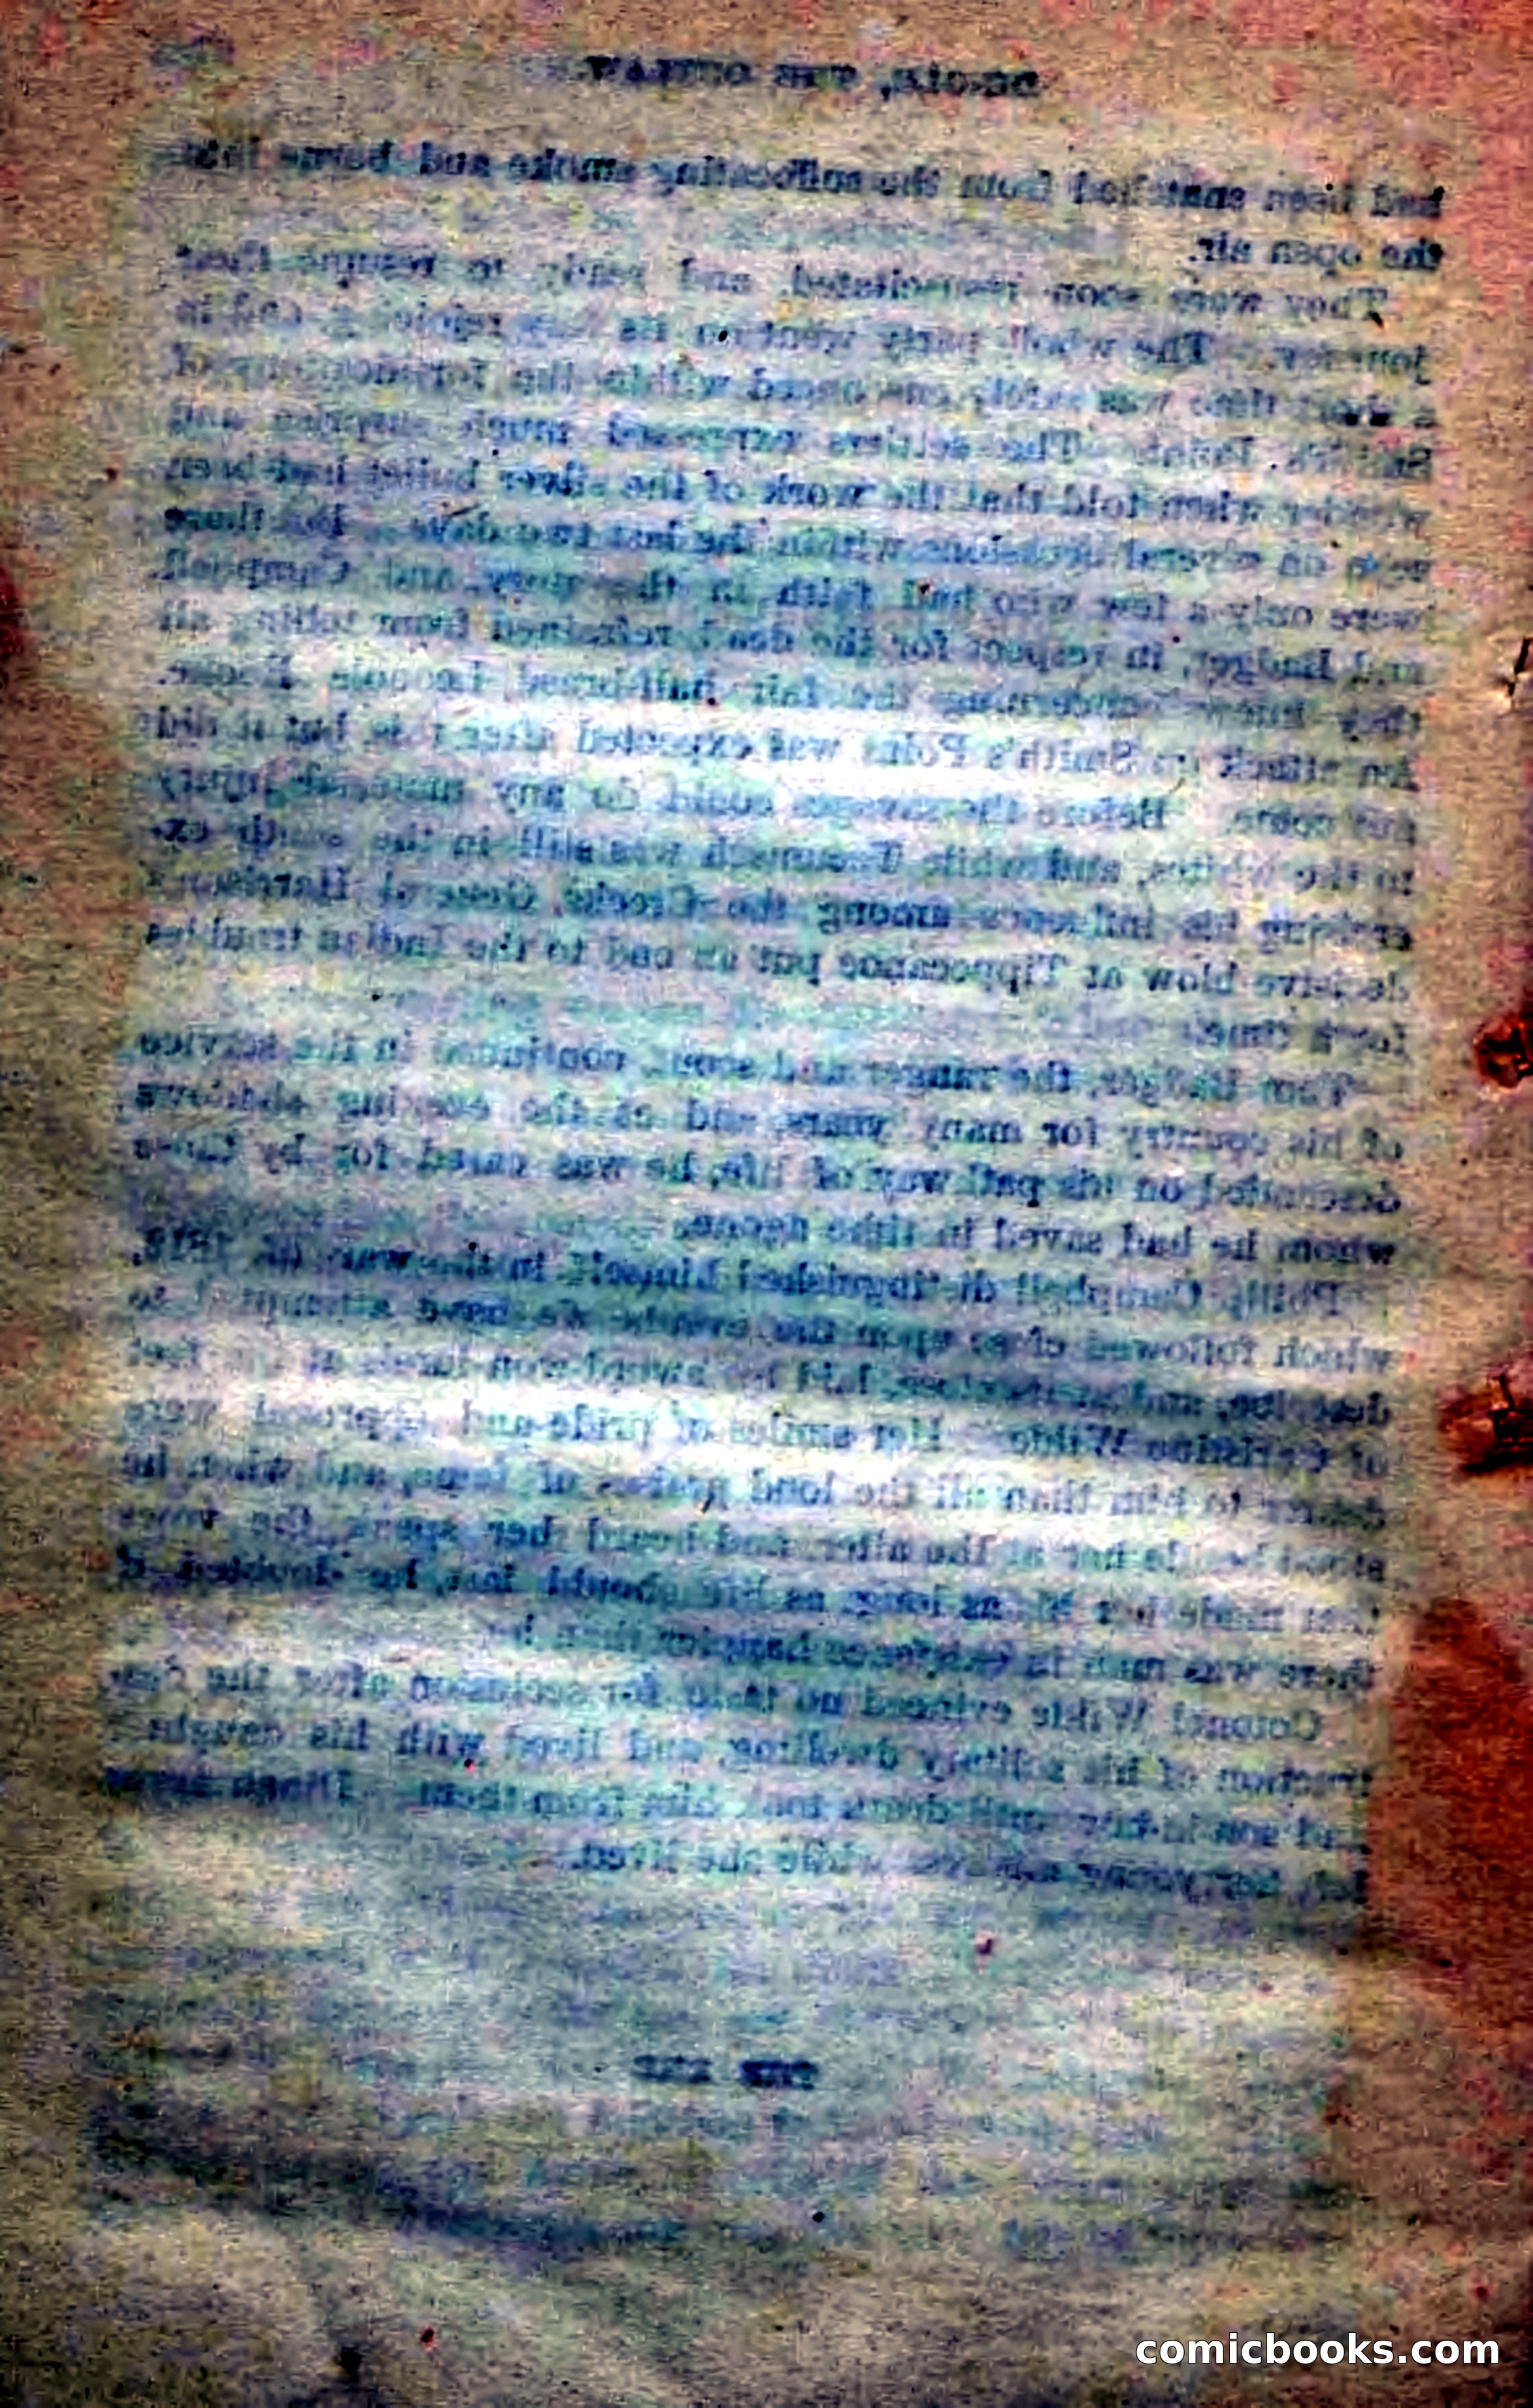 THE OUTLAW.
had been snatched from the suffocating smoke and borne into
the open air.
They were soon resuscitated, and ready to resume their
journey. The whole party went on its way rejoicing, and in
a short time was safely ensconced within the
Smith's Point. The settlers expressed much surprise and
wonder when told that the work of the silver bullet had been
seen on several occasions within the last two days. But there
were only a few who had faith in the story, and Campbell
and Badger, in respect for the dead, refrained from telling all
they knew concerning the fair half-breed,
An attack on Smith's Point was expected but it did
not come. Before the savages could do any material injury
to the whites, and while Tecumseh was still in the south ex-
erting his influence among the Creeks, General Harrison's
decisive blow at Tippecanoe put an end to the Indian troubles
for a time.
Tom Badger, the ranger and scout, continued in the service
of his country for many years, and as the evening shadows
descended on his pathway of life, he was cared for by those
whom he had saved in time agone.
Philip Campbell distinguished himself in the war of 1812,
which followed close upon the events we have attempted to
describe, and laid his sword-won laurels at the feet
of Christine Wilde. Her smiles of pride and approval were
dearer to him than all the loud praises of fame, and when he
stood beside her at the altar, and heard her speak the vows
that made her his as long as life should last, he doubted if
there was man in existence happier than he.
Colonel Wilde evinced no taste for seclusion after the des-
truction of his solitary dwelling, and lived with his daughter
and son-in-law until death took him from them.
while she lived.
THE END.
comicbooks.com